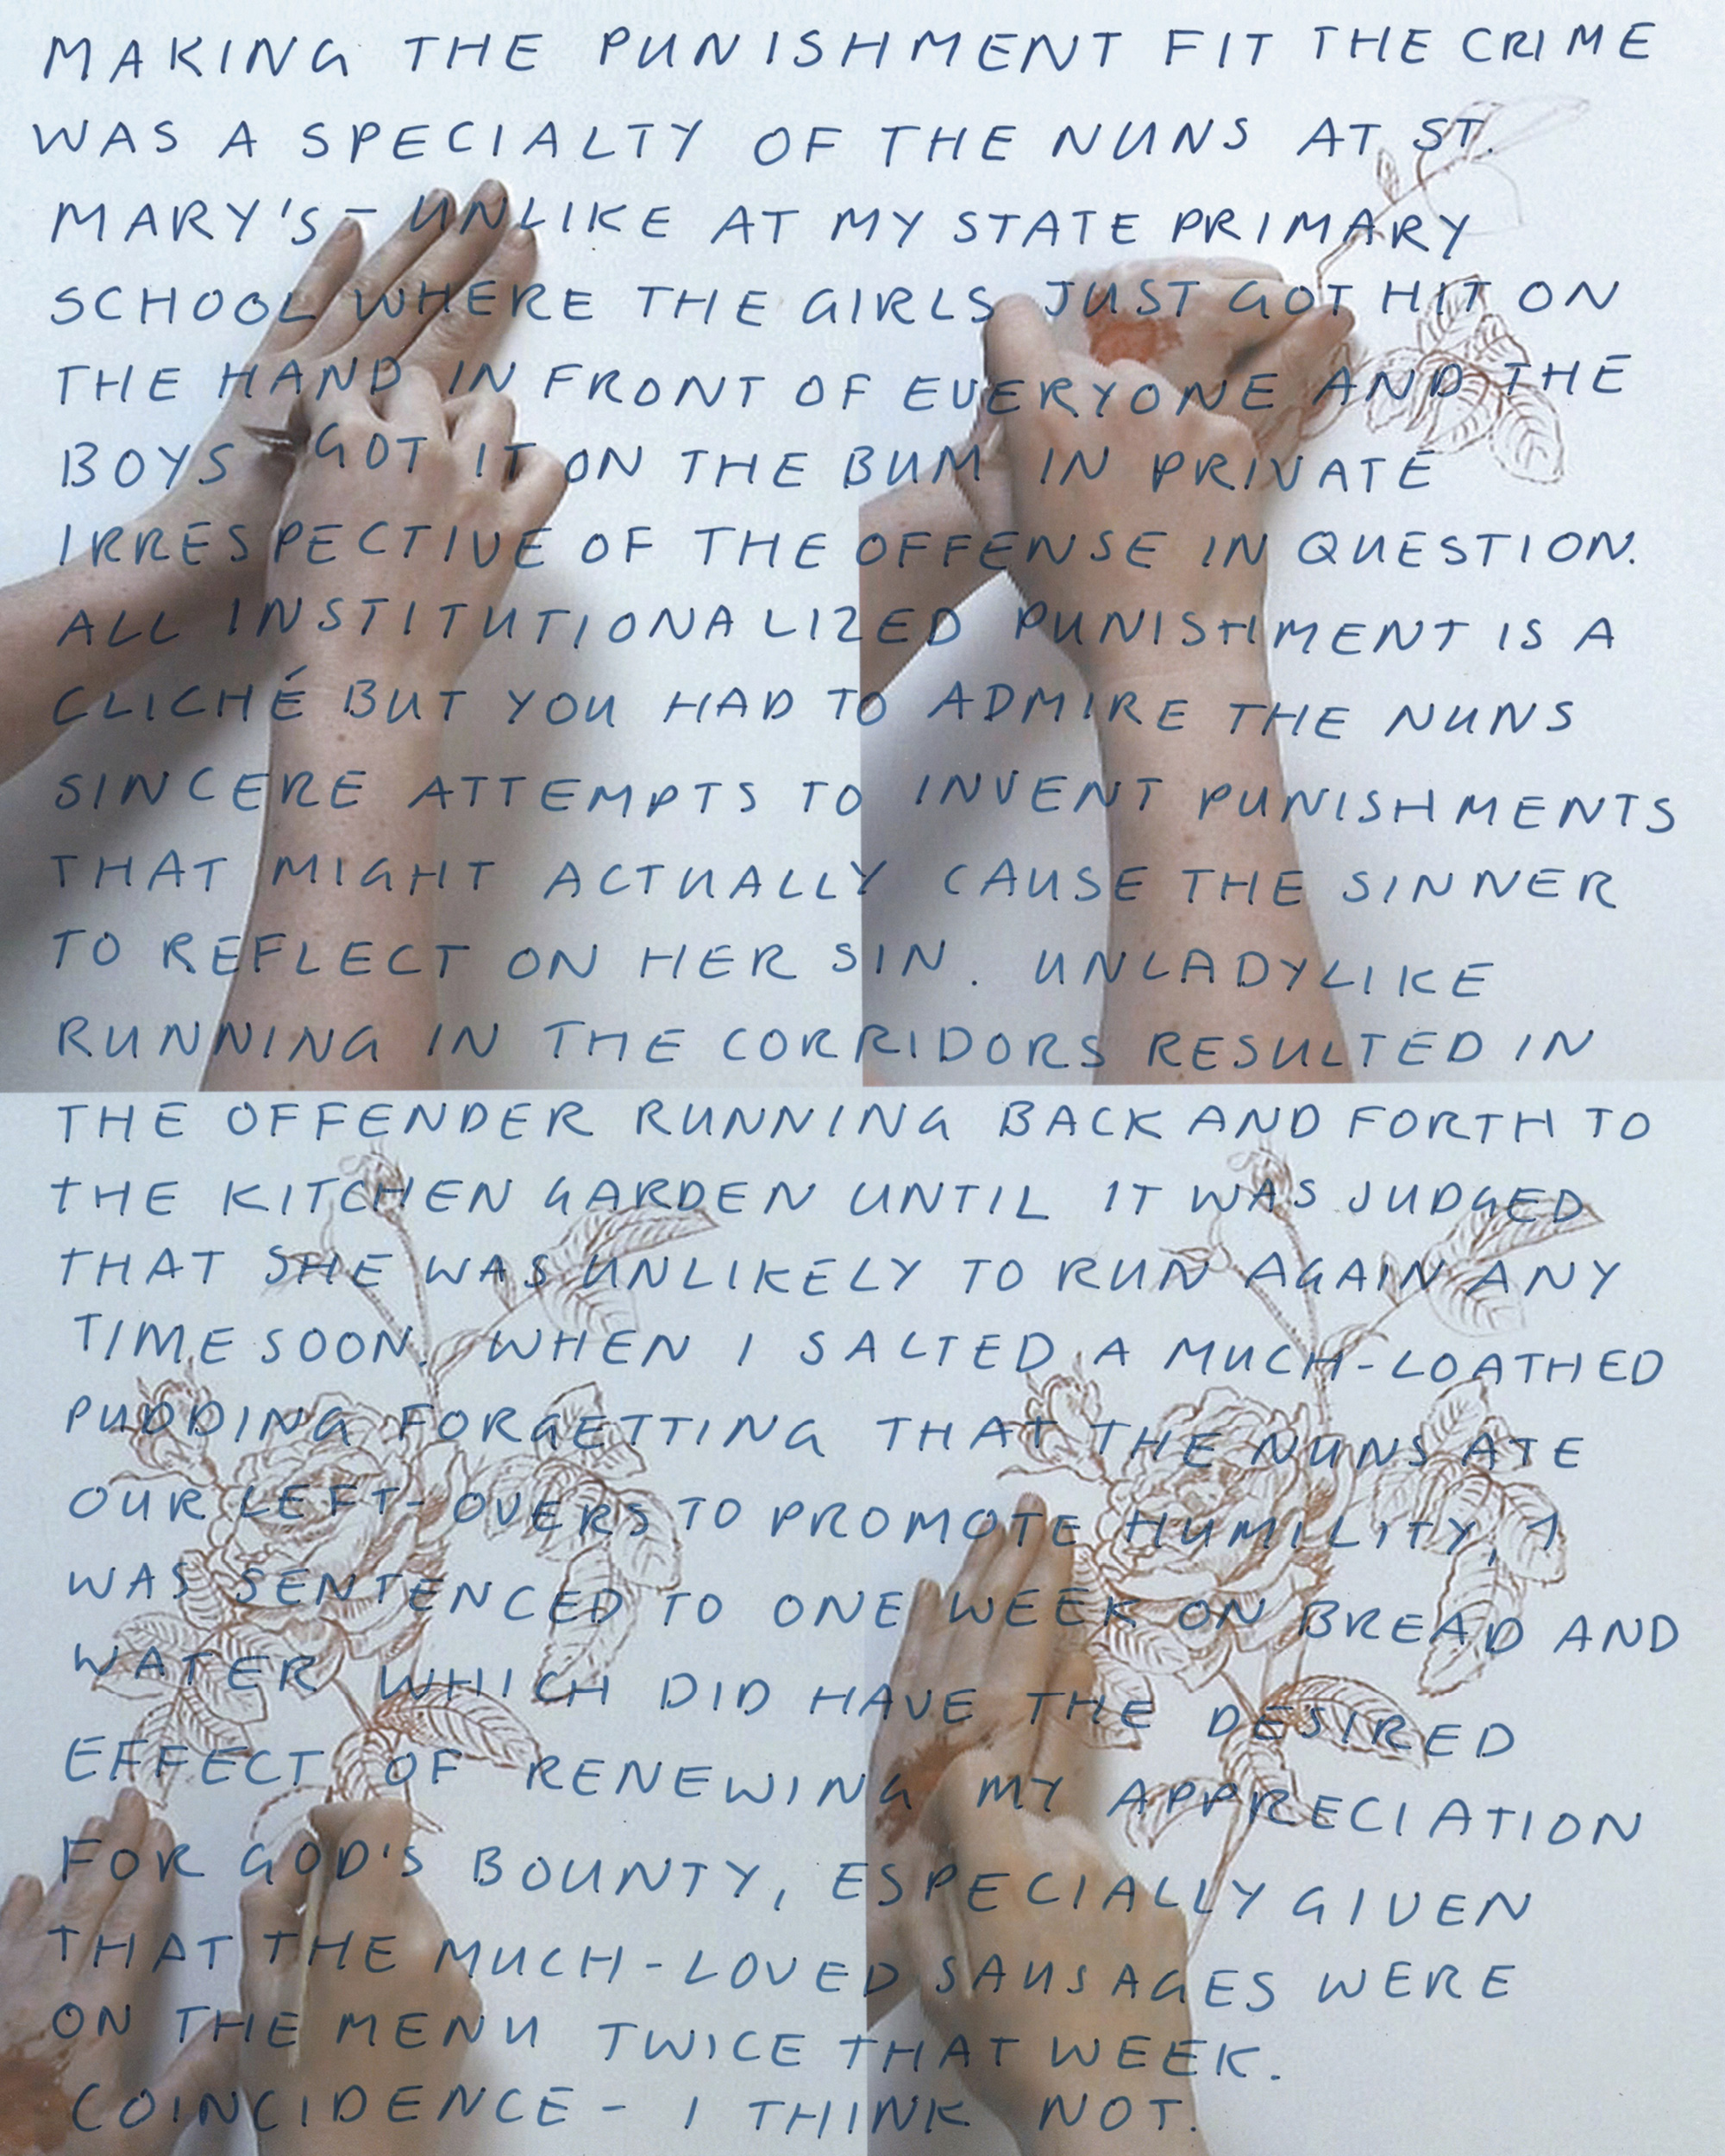 MAKING THE PUNISHMENT FIT THE CRIME
WAS A SPECIALTY OF THE NUNS AT ST.
MARY'S - UNLIKE AT MY STATE PRIMARY
SCHOOL WHERE THE GIRLS JUST GOT HIT ON
THE HAND IN FRONT OF EVERYONE AND THE
BOYS GOT IT ON THE BUM IN PRIVATE
IRRESPECTIVE OF THE OFFENSE IN QUESTION.
ALL INSTITUTIONALIZED PUNISHMENT IS A
CLICHÉ BUT YOU HAD TO ADMIRE THE NUNS
SINCERE ATTEMPTS TO INVENT PUNISHMENTS
THAT MIGHT ACTUALLY CAUSE THE SINNER
TO REFLECT ON HER SIN. UNLADYLIKE
RUNNING IN THE CORRIDORS RESULTED IN
THE OFFENDER RUNNING BACK AND FORTH TO
THE KITCHEN GARDEN UNTIL IT WAS JUDGED
THAT SHE WAS UNLIKELY TO RUN AGAIN ANY
TIME SOON. WHEN I SALTED A MUCH-LOATHED
PUDDING FORGETTING THAT THE NUNS ATE
OUR LEFT-OVERS TO PROMOTE HUMILITY, I
WAS SENTENCED TO ONE WEEK ON BREAD AND
WATER WHICH DID HAVE THE DESIRED
EFFECT OF RENEWING MY APPRECIATION
FOR GOD'S BOUNTY, ESPECIALLY GIVEN
THAT THE MUCH-LOVED SAUSAGES WERE
ON THE MENU TWICE THAT WEEK.
COINCIDENCE - I THINK NOT.